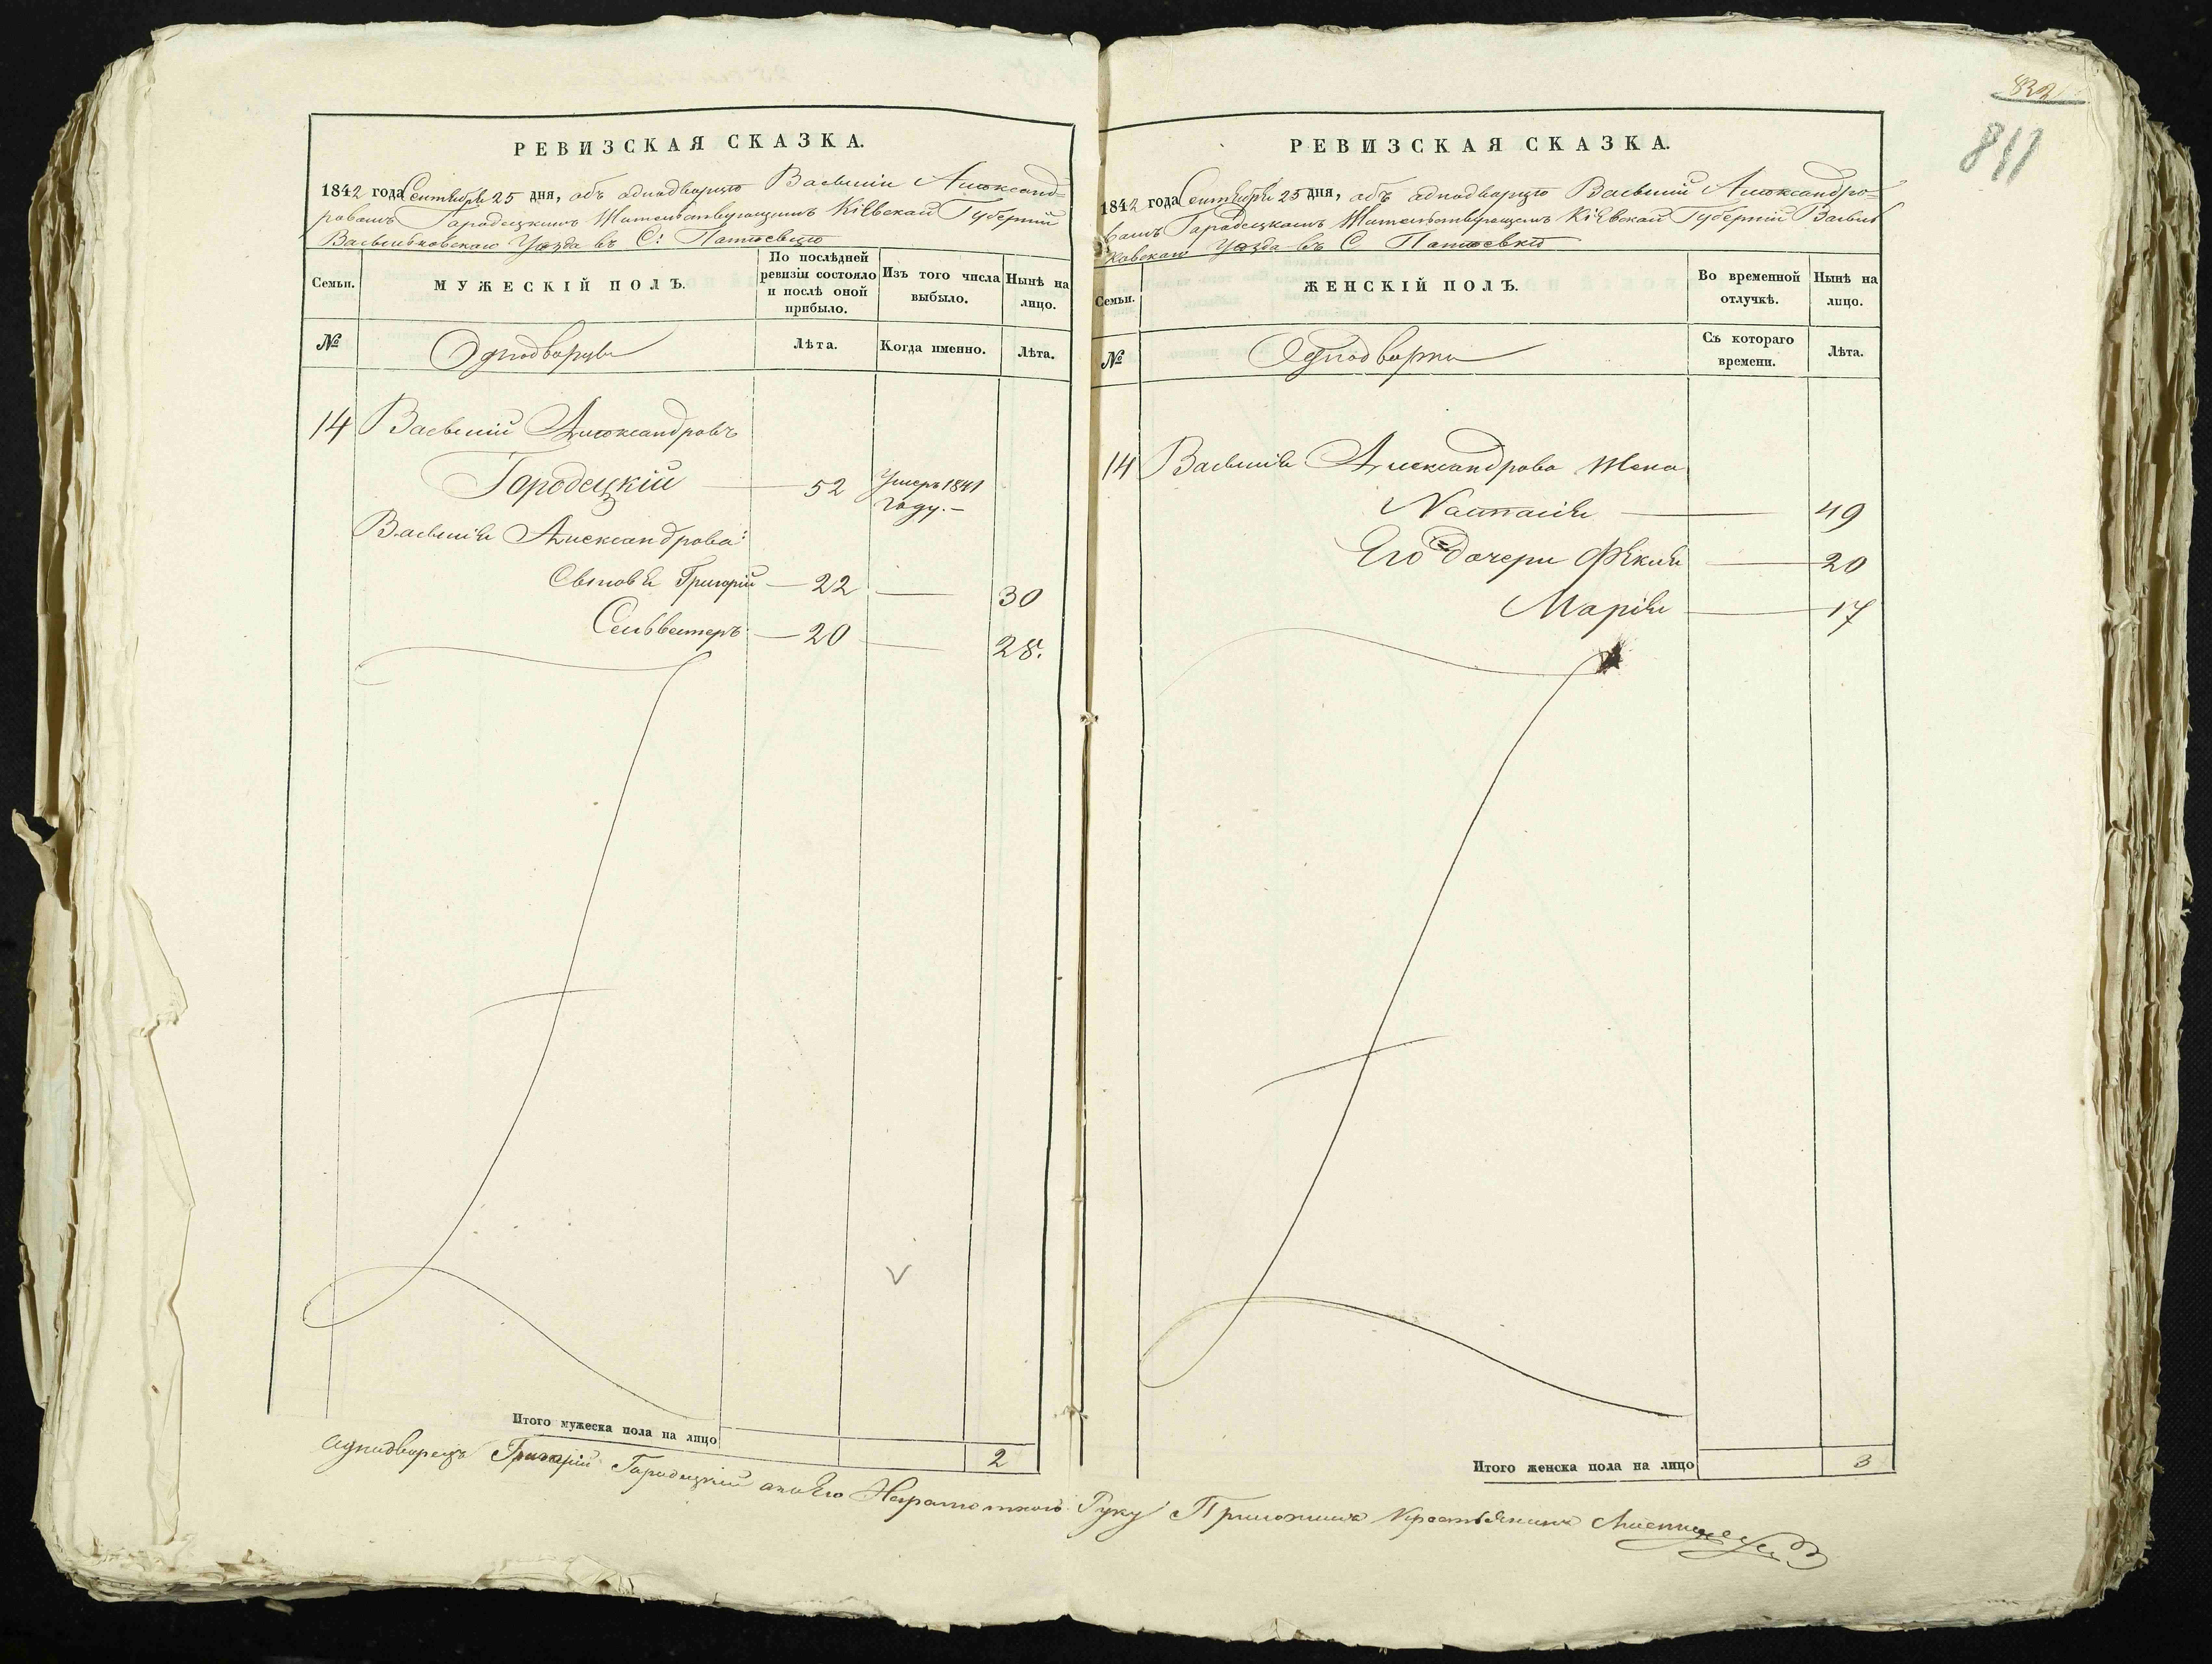 РЕВИЗСКАЯ СКАЗКА.
1842 года Сентября 25 дня, объ аднодворцѣ Васылии Алѣксанд-
ровомъ Гарадецкимъ Жительствующимъ Кіевской Губерніи
Васыльковскаго Уѣзда въ С:
Семьи.
МУЖЕСКІЙ ПОЛЪ.
По послѣдней ревизіи состояло и послѣ оной прибыло.
Изъ того числа выбыло.
Нынѣ на лицо.
№
Однодворцы
Лѣта.
Когда именно.
Лѣта.
14 Васылий Алѣксандровъ
Городецкій 52 Умеръ 1841
году.
Васылія Александрова:
Сыновья Григорій 22 30
Сельвестеръ 20 28.
Итого мужеска пола на лицо 2
832
811
РЕВИЗСКАЯ СКАЗКА.
1842 года Сентября 25 дня, объ аднодворцѣ Васылий Алѣксандро-
вомъ Гарадецкомъ Жительствующемъ Кіевской Губерній Васыль
ковскаго Уѣзда въ С
Семьи.
ЖЕНСКІЙ ПОЛЪ.
Во временной отлучкѣ.
Нынѣ на лицо.
№
Однодворки
Съ котораго времени.
Лѣта.
14 Васылія Александрова Жена
Настасія 49
Его дочери 20
Марія 17
Итого женска пола на лицо 3
Аднодворецъ Григорій Гарадецкий а Его Неграмотного Руку Приложилъ